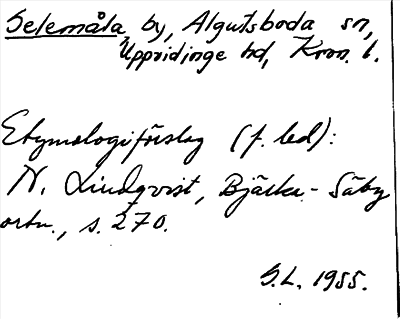 Selemåla, by, Algutsboda sn,
Uppvidinge hd, Kron. l.
Etymologiförslag (f. led):
N. Lindqvist, Bjärka-Säby
ortn., s. 270.
S.L. 1955.